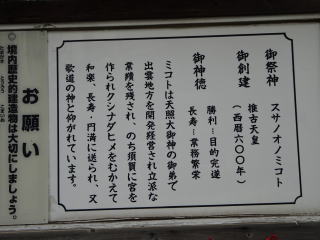 御祭神　スサノオノミコト
御創建　推古天皇
（西暦六〇〇年）
御神徳　勝利…目的完遂
長寿…業務繁栄
ミコトは天照大御神の御弟で
出雲地方を開発経営され立派な
業績を残され、のち須賀に宮を
作られクシナダヒメをむかえて
和楽、長寿・円満に送られ、又
歌道の神と仰がれています。
お願い
◎境内歴史的建造物は大切にしましょう。